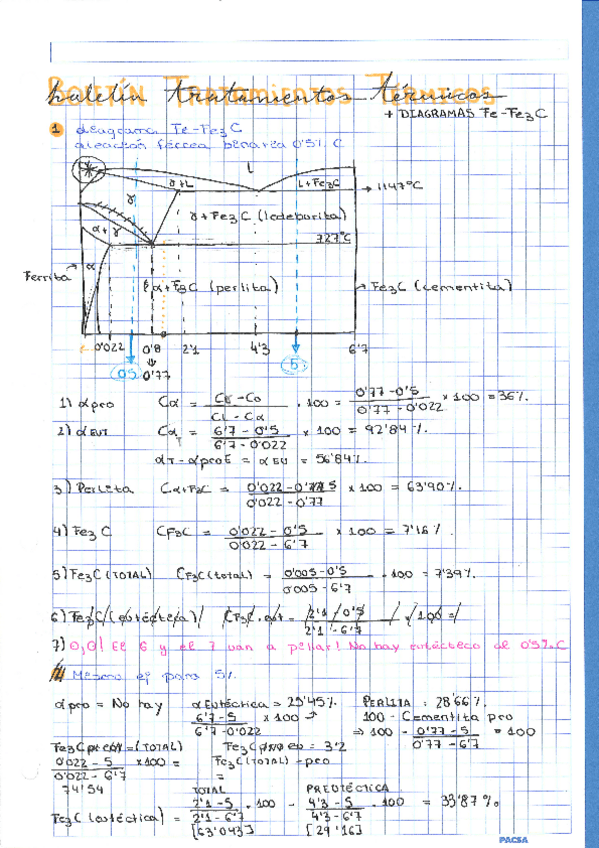 BOLETÍN TRATAMIENTOS TÉRMICOS
boletín tratamientos térmicos
+ DIAGRAMAS Fe-Fe3C
1 diagrama Fe-Fe3C
aleación férrea binaria 0'5% C
L
γ+L
L+Fe3C
1147ºC
γ
γ+Fe3C (ledeburita)
α+γ
727ºC
α
Ferrita
α+Fe3C (perlita)
Fe3C (cementita)
0'022 0'8 2'1 4'3 6'7
0'5 0'77 5
1) α pro Cα = CE - C0 / CE - Cα · 100 = 0'77 - 0'5 / 0'77 - 0'022 × 100 = 36%
2) α EUT CαT = 6'7 - 0'5 / 6'7 - 0'022 × 100 = 92'84%
αT - αproE = αEU = 56'84%
3) Perlita Cα+F3C = 0'022 - 0'5 / 0'022 - 0'77 × 100 = 63'90%
4) Fe3C CF3C = 0'022 - 0'5 / 0'022 - 6'7 × 100 = 7'16%
5) Fe3C (TOTAL) CF3C (total) = 0'005 - 0'5 / 0'005 - 6'7 · 100 = 7'39%
6) Fe3C (eutéctica) CF3C eut = 2'1 / 0'5 / 2'1 - 6'7 × 100 =
7) O,O! El 6 y el 7 van a pillar! No hay eutéctico al 0'5% C
Mismo ej para 5%
α pro = No hay
α Eutéctica = 25'45%
6'7 - 5 / 6'7 - 0'022 × 100
PERLITA : 28'66%
100 - Cementita pro
⇒ 100 - 0'77 - 5 / 0'77 - 6'7 · 100
Fe3C (TOTAL)
0'022 - 5 / 0'022 - 6'7 × 100 =
74'54
= 3'2
Fe3C (TOTAL) - pro
=
TOTAL PROEUTÉCTICA
Fe3C (eutéctica) = 2'1 - 5 / 2'1 - 6'7 · 100 - 4'3 - 5 / 4'3 - 6'7 · 100 = 33'87%
[63'043] [29'16]
PACSA